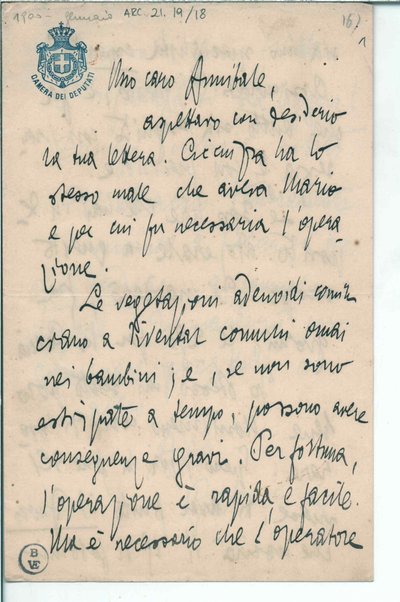 1900 - Gennaio
ARC. 21. 19/18
16)
1
CAMERA DEI DEPUTATI
Mio caro Annibale,
aspettavo con desiderio
la tua lettera. Ciccuzza ha lo
stesso male che aveva Mario
e per cui fu necessaria l'opera
zione.
Le vegetazioni adenoidi comin
ciano a diventar comuni omai
nei bambini; e, se non sono
estirpate a tempo, possono avere
conseguenze gravi. Per fortuna,
l'operazione è rapida e facile.
Ma è necessario che l'operatore
B
VE